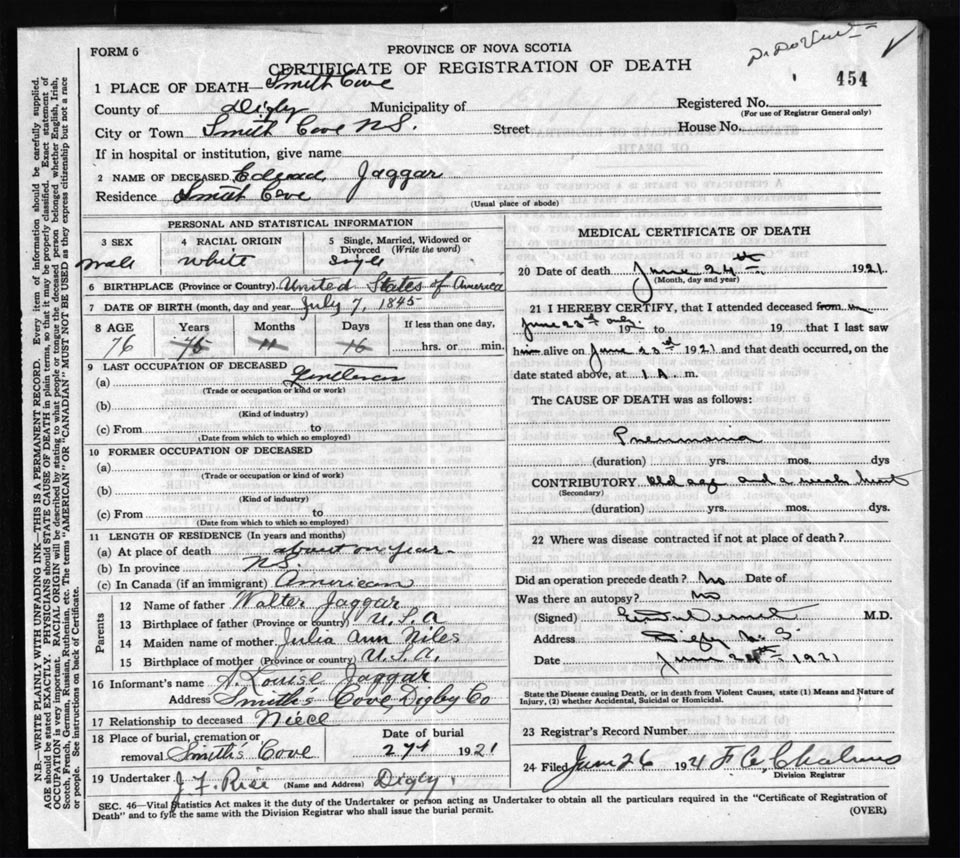 FORM 6
PROVINCE OF NOVA SCOTIA
CERTIFICATE OF REGISTRATION OF DEATH
454
1 PLACE OF DEATH— Smith Cove
County of Digby Municipality of Registered No.
(For use of Registrar General only)
City or Town Smith Cove N.S. Street House No.
If in hospital or institution, give name
2 NAME OF DECEASED Edward Jaggar
Residence Smith Cove
(Usual place of abode)
PERSONAL AND STATISTICAL INFORMATION
3 SEX
male
4 RACIAL ORIGIN
white
5 Single, Married, Widowed or Divorced (Write the word)
Single
6 BIRTHPLACE (Province or Country) United States of America
7 DATE OF BIRTH (month, day and year) July 7, 1845
8 AGE Years Months Days If less than one day,
76 75 11 16 hrs. or min.
9 LAST OCCUPATION OF DECEASED
(a) Gentleman
(Trade or occupation or kind or work)
(b)
(Kind of industry)
(c) From to
(Date from which to which so employed)
10 FORMER OCCUPATION OF DECEASED
(a)
(Trade or occupation or kind of work)
(b)
(Kind of industry)
(c) From to
(Date from which to which so employed)
11 LENGTH OF RESIDENCE (In years and months)
(a) At place of death about on year
(b) In province N.S.
(c) In Canada (if an immigrant) American
Parents
12 Name of father Walter Jaggar
13 Birthplace of father (Province or country) U.S.A
14 Maiden name of mother Julia Ann Niles
15 Birthplace of mother (Province or country) U.S.A.
16 Informant's name A. Louise Jaggar
Address Smith's Cove, Digby Co
17 Relationship to deceased Niece
18 Place of burial, cremation or removal Smith's Cove
Date of burial
27th 1921
19 Undertaker J. F. Rice (Name and Address) Digby
MEDICAL CERTIFICATE OF DEATH
20 Date of death June 24th 1921
(Month, day and year)
21 I HEREBY CERTIFY, that I attended deceased from
June 23rd only 19 to 19 that I last saw
him alive on June 23rd 1921 and that death occurred, on the
date stated above, at 1 A m.
The CAUSE OF DEATH was as follows:
Pneumonia
(duration) yrs. mos. dys
CONTRIBUTORY old age and a weak heart
(Secondary)
(duration) yrs. mos. dys.
22 Where was disease contracted if not at place of death?
Did an operation precede death? No Date of
Was there an autopsy? No
(Signed) M.D.
Address Digby N.S.
Date June 24th 1921
State the Disease causing Death, or in death from Violent Causes, state (1) Means and Nature of
Injury, (2) whether Accidental, Suicidal or Homicidal.
23 Registrar's Record Number
24 Filed June 26 1921
Division Registrar
SEC. 46—Vital Statistics Act makes it the duty of the Undertaker or person acting as Undertaker to obtain all the particulars required in the "Certificate of Registration of
Death" and to fyle the same with the Division Registrar who shall issue the burial permit.
(OVER)
N.B.—WRITE PLAINLY WITH UNFADING INK—THIS IS A PERMANENT RECORD. Every item of information should be carefully supplied.
AGE should be stated EXACTLY. PHYSICIANS should STATE CAUSE OF DEATH in plain terms, so that it may be properly classified. Exact statement of
OCCUPATION is very important. RACIAL ORIGIN will be described by stating to what people or tongue the deceased person belonged whether English, Irish,
Scotch, French, German, Russian, Ruthenian, etc. The terms "AMERICAN" OR "CANADIAN" MUST NOT BE USED as they express citizenship but not a race
or people. See instructions on back of Certificate.